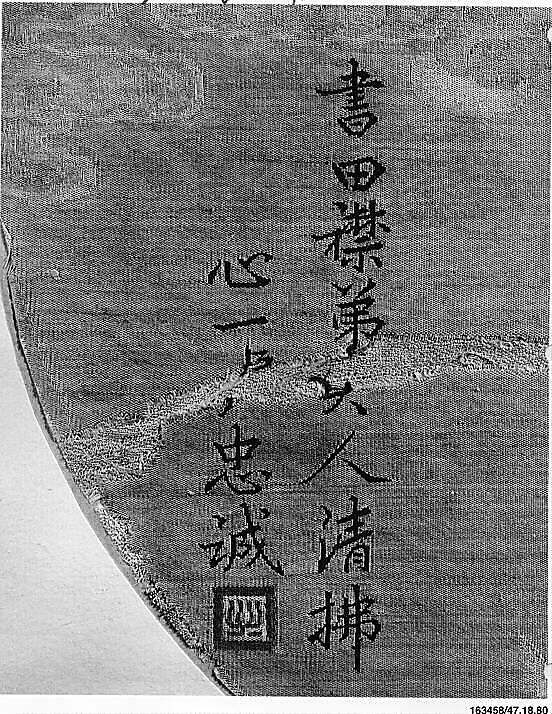 書田襟弟大人清拂
心一忠誠
163458/47.18.80